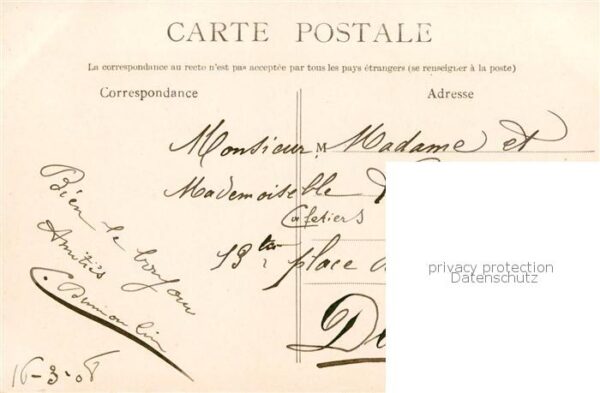 CARTE POSTALE
La correspondance au recto n'est pas acceptée par tous les pays étrangers (se renseigner à la poste)
Correspondance
Adresse
Monsieur M Madame et
Mademoiselle
Cafetiers
13 place
De
Bien le bonjour
Amitiés
C. Dumoulin
16-3-08
privacy protection
Datenschutz